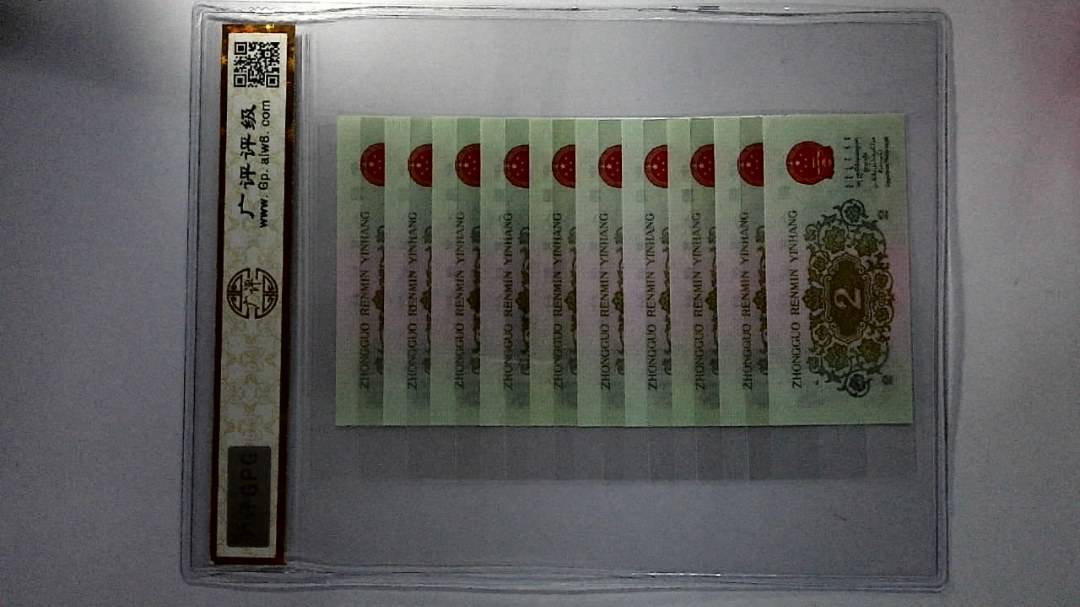 广评评级
www.Gp.aiw8.com
广评
GPG
ZHONGGUO RENMIN YINHANG
ZHONGGUO RENMIN YINHANG
ZHONGGUO RENMIN YINHANG
ZHONGGUO RENMIN YINHANG
ZHONGGUO RENMIN YINHANG
ZHONGGUO RENMIN YINHANG
ZHONGGUO RENMIN YINHANG
ZHONGGUO RENMIN YINHANG
ZHONGGUO RENMIN YINHANG
ZHONGGUO RENMIN YINHANG
2